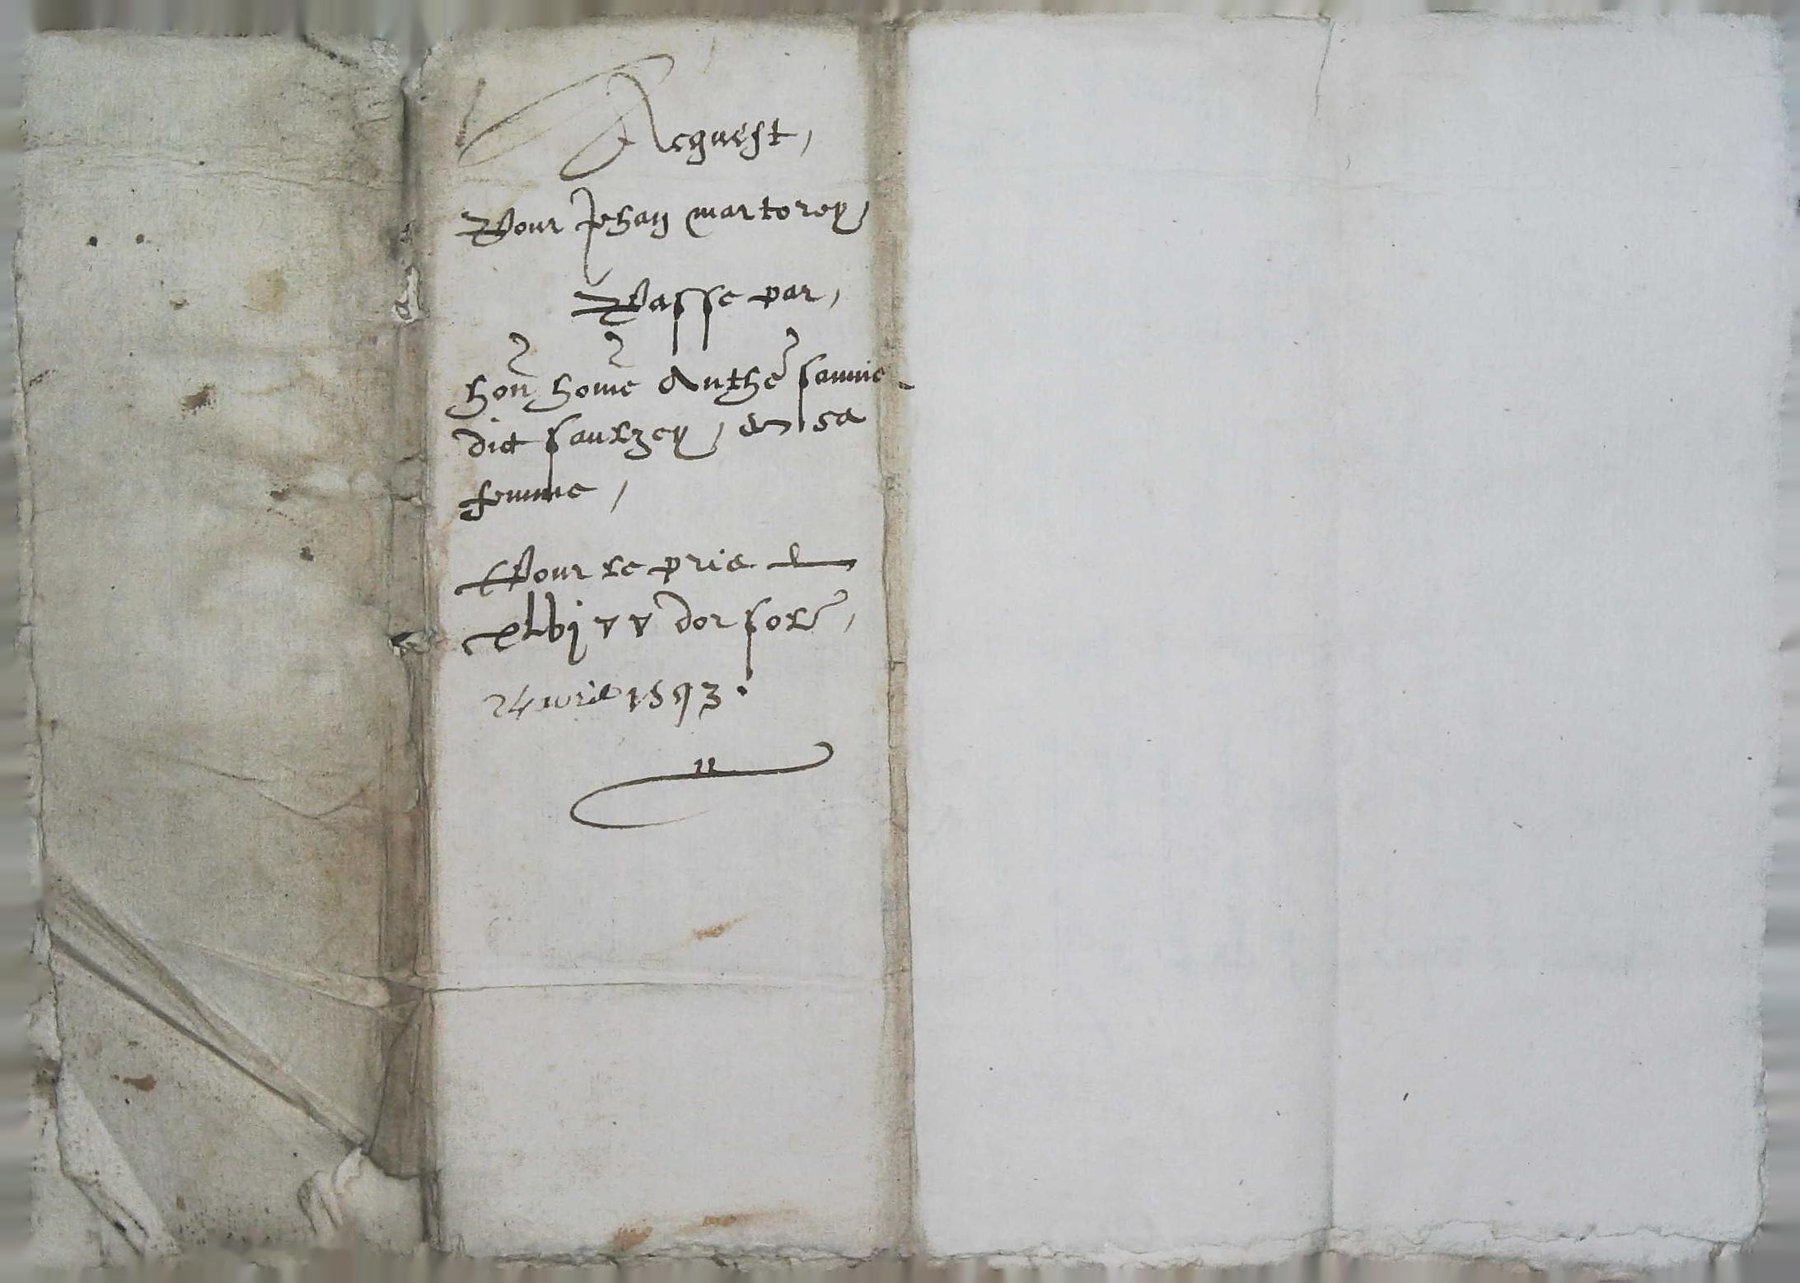 Acquest,
Pour Jehan martorey,
Passe par,
hon home Anthe
dict saulzey, et sa
femme,
Pour le pris de
xlvj vv dor sole,
24 avril 1593.